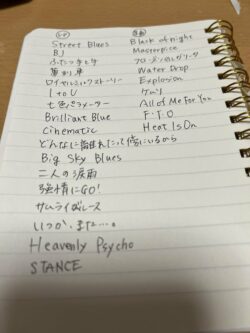 Street Blues
BJ
ふたつの手と手
ロイヤルミルクストーリー
I to U
七色パラメーター
Brilliant Blue
Cinematic
どんなに離れたって傍にいるから
Big Sky Blues
二人の涙雨
強情にGO!
サムライブルース
いつか、また…。
Heavenly Psycho
STANCE
Black of night
Masterpiece
Water Drop
Explosion
ケムリ
All of Me For You
F・T・O
Heat Is On